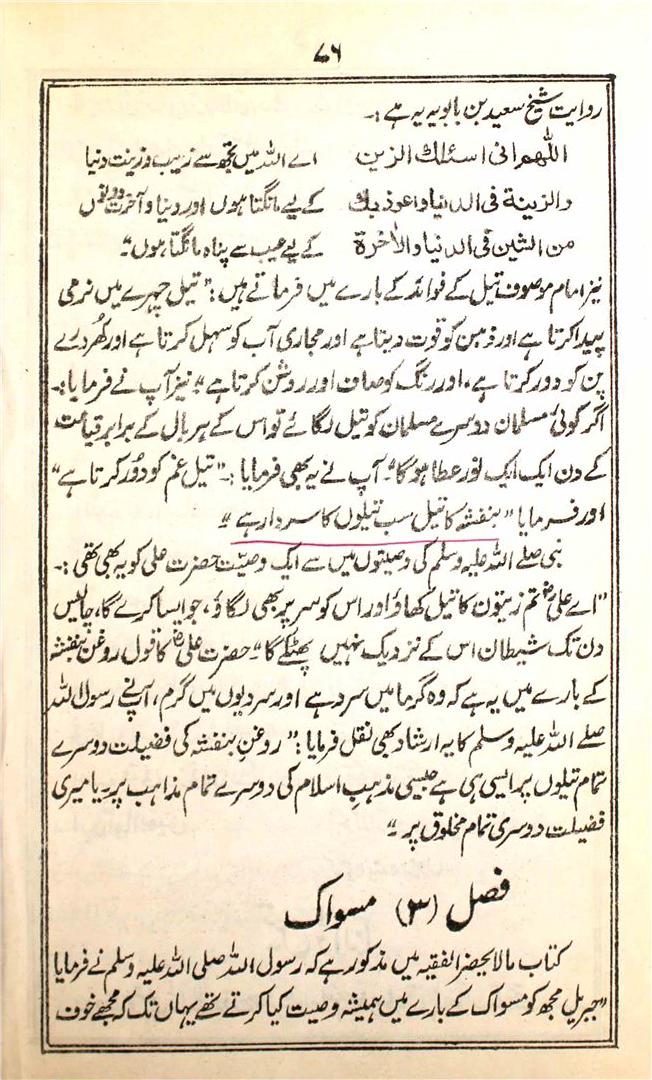 ۷۶
روایت شیخ سعید بن بابویہ یہ ہے:۔
اللّٰھم انی اسئلک الزین اے اللہ میں تجھ سے زیب و زینت دنیا
والزینة فی الدنیا واعوذ بک کے لیے مانگتا ہوں اور دنیا و آخرت دونوں
من الشین فی الدنیا والاٰخرة کے لیے عیب سے پناہ مانگتا ہوں"۔
نیز امام موصوف تیل کے فوائد کے بارے میں فرماتے ہیں:" تیل چہرے میں نرمی
پیدا کرتا ہے اور ذہن کو قوت دیتا ہے اور مجاری آب کو سہل کرتا ہے اور کُھردرے
پن کو دور کرتا ہے، اور رنگ کو صاف اور روشن کرتا ہے" نیز آپ نے فرمایا:۔
اگر کوئی مسلمان دوسرے مسلمان کو تیل لگائے تو اس کے ہر بال کے برابر قیامت
کے دن ایک ایک نور عطا ہوگا"۔ آپ نے یہ بھی فرمایا:۔" تیل غم کو دُور کرتا ہے"
اور فرمایا "بنفشہ کا تیل سب تیلوں کا سردار ہے"
نبی صلے اللہ علیہ وسلم کی وصیتوں میں سے ایک وصیت حضرت علی کو یہ بھی تھی:۔
"اے علیؓ تم زیتون کا تیل کھاؤ اور اس کو سر پر بھی لگاؤ، جو ایسا کرے گا، چالیس
دن تک شیطان اس کے نزدیک نہیں پھٹکے گا"۔ حضرت علیؓ کا قول روغن بنفشہ
کے بارے میں یہ ہے کہ وہ گرما میں سرد ہے اور سردیوں میں گرم، آپنے رسول اللہ
صلے اللہ علیہ وسلم کا یہ ارشاد بھی نقل فرمایا:" روغنِ بنفشہ کی فضیلت دوسرے
تمام تیلوں پر ایسی ہی ہے جیسی مذہبِ اسلام کی دوسرے تمام مذاہب پر۔ یا میری
فضیلت دوسری تمام مخلوق پر"
فصل (۳) مسواک
کتاب مالایحضر الفقیہ میں مذکور ہے کہ رسول اللہ صلی اللہ علیہ وسلم نے فرمایا
"جبریل مجھ کو مسواک کے بارے میں ہمیشہ وصیت کیا کرتے تھے یہاں تک کہ مجھے خوف